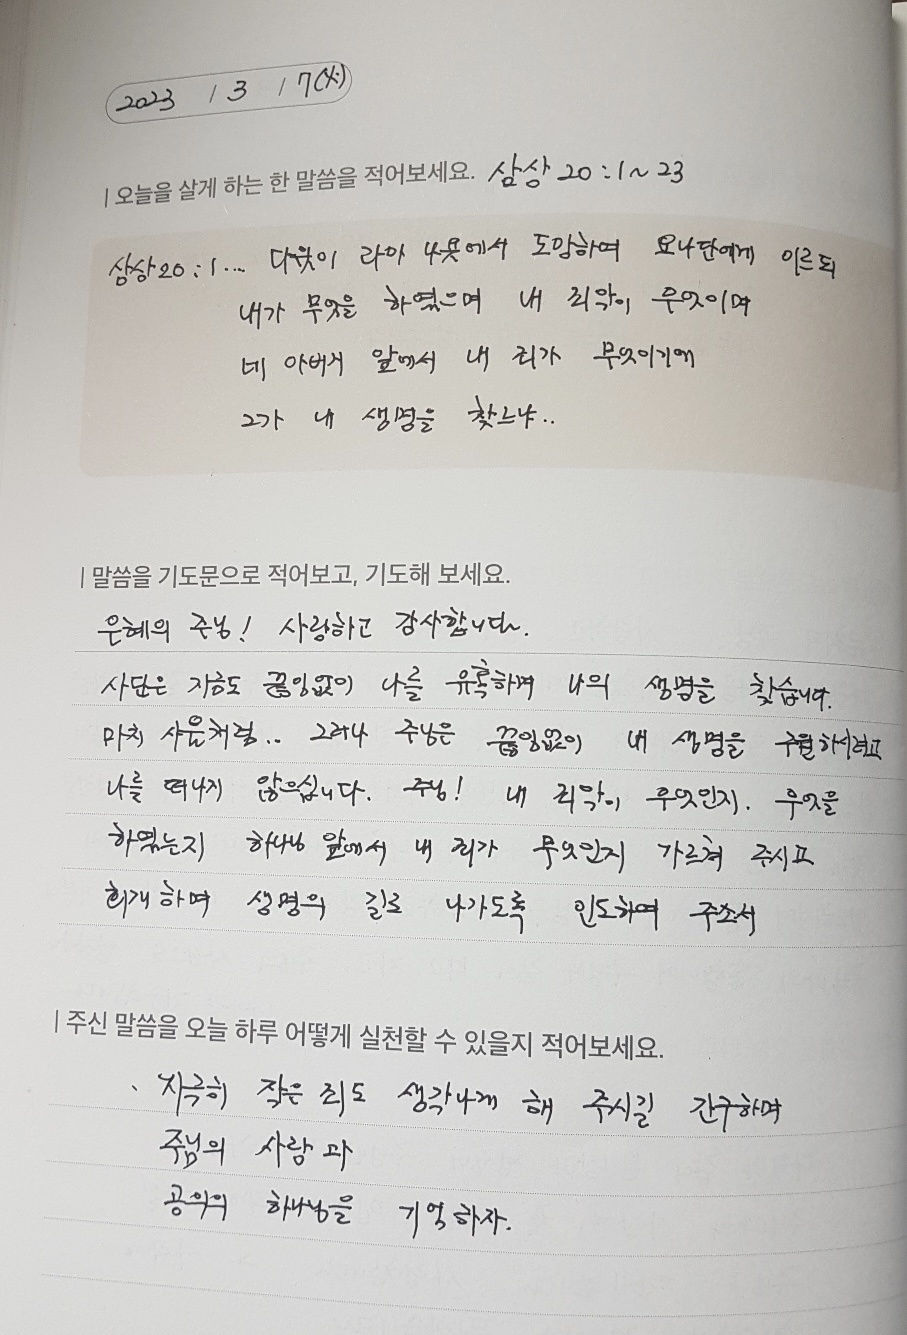 2023 / 3 / 7(火)
| 오늘을 살게 하는 한 말씀을 적어보세요. 삼상 20:1~23
삼상20:1... 다윗이 라마 나욧에서 도망하여 요나단에게 이르되
내가 무엇을 하였으며 내 죄악이 무엇이며
네 아버지 앞에서 내 죄가 무엇이기에
그가 내 생명을 찾느냐..
| 말씀을 기도문으로 적어보고, 기도해 보세요.
은혜의 주님! 사랑하고 감사합니다.
사단은 지금도 끊임없이 나를 유혹하며 나의 생명을 찾습니다.
마치 사울처럼.. 그러나 주님은 끊임없이 내 생명을 구원하시려고
나를 떠나지 않으십니다. 주님! 내 죄악이 무엇인지. 무엇을
하였는지 하나님 앞에서 내 죄가 무엇인지 가르쳐 주시고
회개하며 생명의 길로 나가도록 인도하여 주소서
| 주신 말씀을 오늘 하루 어떻게 실천할 수 있을지 적어보세요.
· 지극히 작은 죄도 생각나게 해 주시길 간구하며
주님의 사랑과
공의의 하나님을 기억하자.